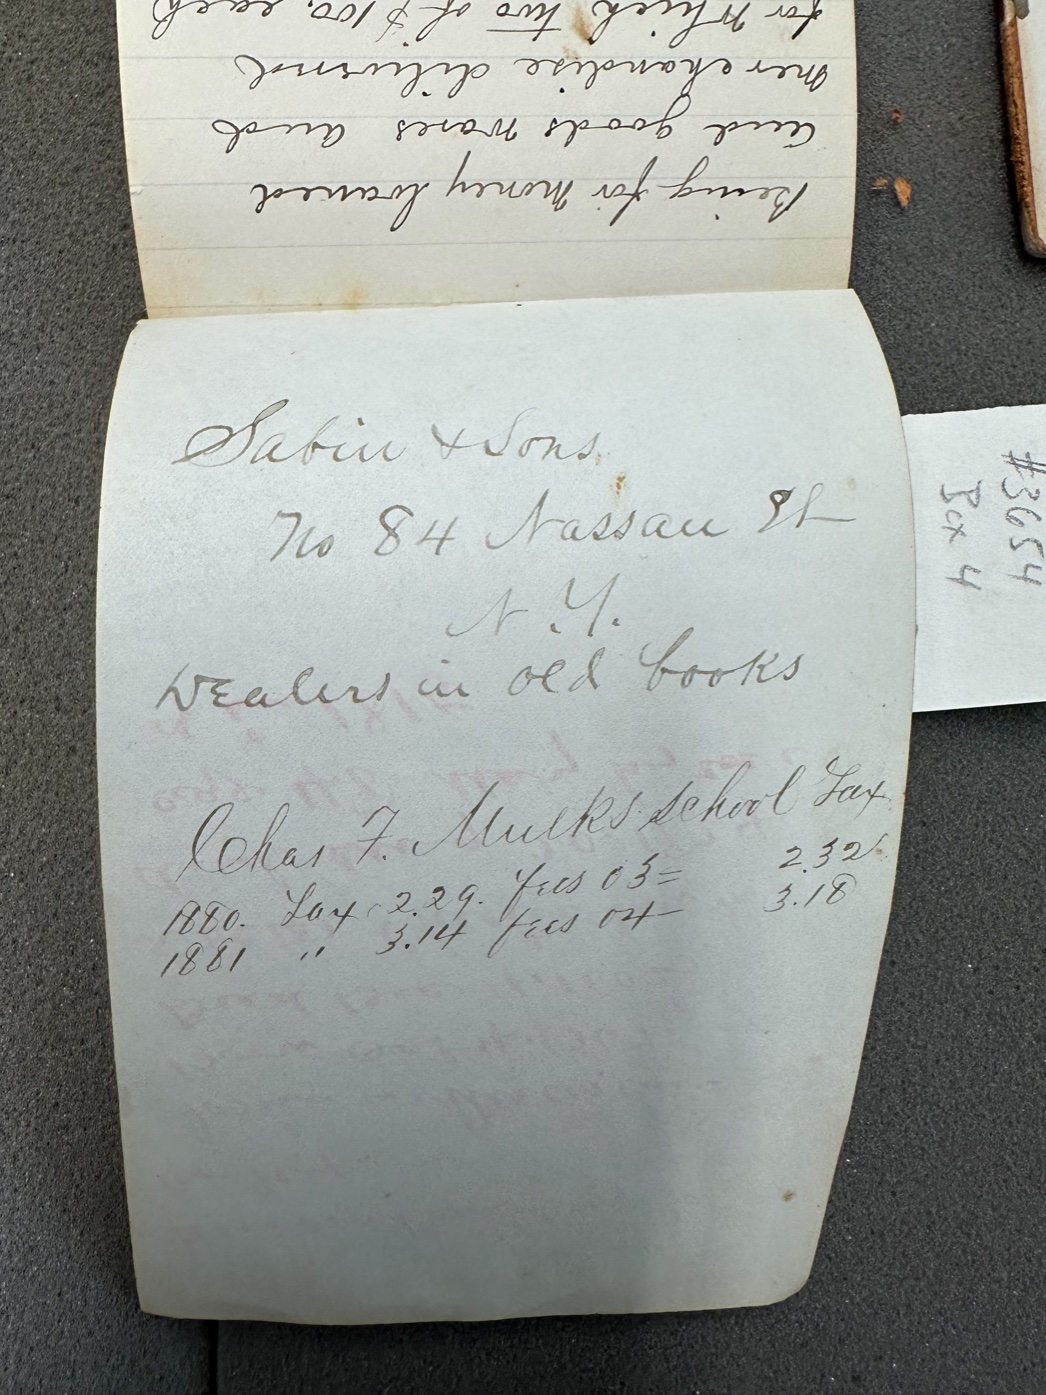 Being for money loaned
and goods wares and
merchandise deliverd
for which two of $100, each
Sabin & Sons.
No 84 Nassau St
N.Y.
Dealers in old books
Chas F. Mulks school Tax
1880. Tax 2.29. fees 03= 2.32
1881 " 3.14 fees 04 3.18
#3654
Box 4